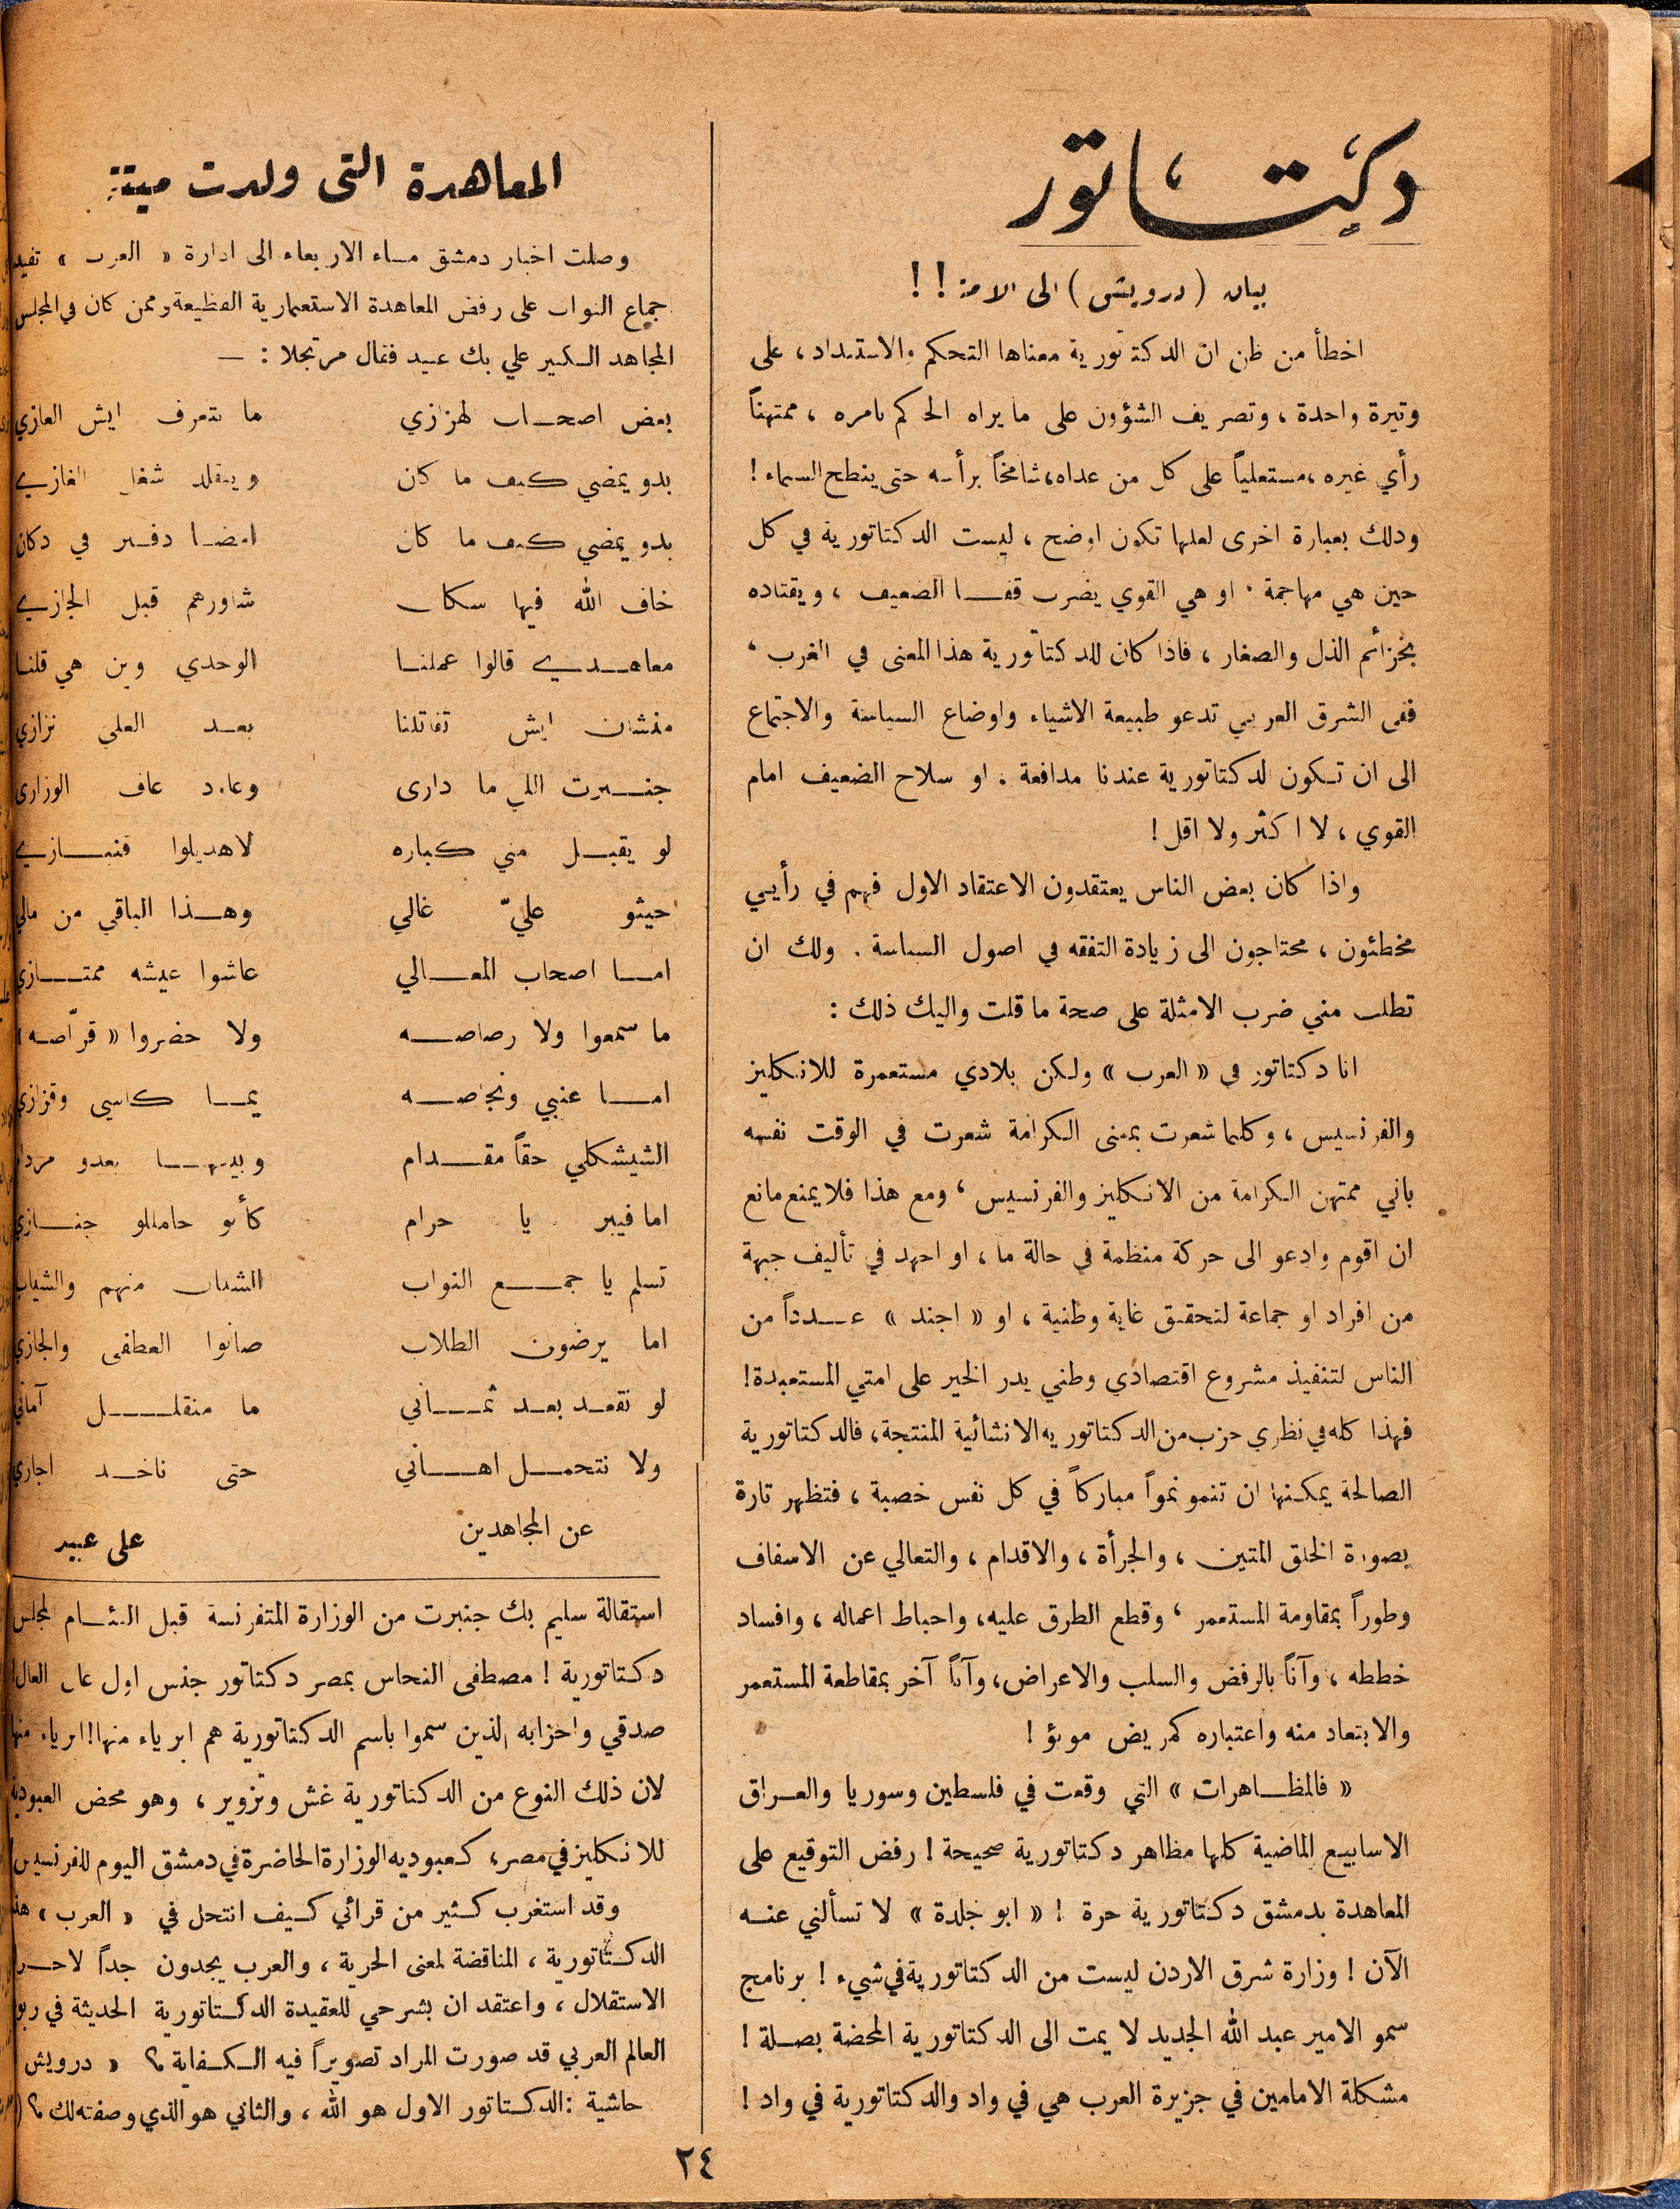 دكتاتور
بيان (درويش) الى الامة !!
اخطأ من ظن ان الدكتاتورية معناها التحكم والاستبداد ، على
وتيرة واحدة ، وتصريف الشؤون على ما يراه الحاكم بامره ، ممتهناً
رأي غيره ، مستعلياً على كل من عداه ، شامخاً برأسه حتى ينطح السماء !
وذلك بعبارة اخرى لعلها تكون اوضح ، ليست الدكتاتورية في كل
حين هي مهاجمة . او هي القوي يضرب قفا الضعيف ، ويقتاده
بخزائم الذل والصغار ، فاذا كان للدكتاتورية هذا المعنى في الغرب ،
ففي الشرق العربي تدعو طبيعة الاشياء واوضاع السياسة والاجتماع
الى ان تكون لدكتاتورية عندنا مدافعة . او سلاح الضعيف امام
القوي ، لا اكثر ولا اقل !
واذا كان بعض الناس يعتقدون الاعتقاد الاول فهم في رأيي
مخطئون ، محتاجون الى زيادة التفقه في اصول السياسة . ولك ان
تطلب مني ضرب الامثلة على صحة ما قلت واليك ذلك :
انا دكتاتور في « العرب » ولكن بلادي مستعمرة للانكليز
والفرنسيس ، وكلما شعرت بمعنى الكرامة شعرت في الوقت نفسه
باني ممتهن الكرامة من الانكليز والفرنسيس ، ومع هذا فلا يمنع مانع
ان اقوم وادعو الى حركة منظمة في حالة ما ، او اجهد في تأليف جبهة
من افراد او جماعة لتحقيق غاية وطنية ، او « اجند » عدداً من
الناس لتنفيذ مشروع اقتصادي وطني يدر الخير على امتي المستعبدة !
فهذا كله في نظري حزب من الدكتاتوريه الانشائية المنتجة ، فالدكتاتورية
الصالحة يمكنها ان تنمو نمواً مباركاً في كل نفس خصبة ، فتظهر تارة
بصورة الخلق المتين ، والجرأة ، والاقدام ، والتعالي عن الاسفاف
وطوراً بمقاومة المستعمر ، وقطع الطرق عليه ، واحباط اعماله ، وافساد
خططه ، وآناً بالرفض والسلب والاعراض ، وآناً آخر بمقاطعة المستعمر
والابتعاد منه واعتباره كمريض موبؤ !
« فالمظاهرات » التي وقعت في فلسطين وسوريا والعراق
الاسابيع الماضية كلها مظاهر دكتاتورية صحيحة ! رفض التوقيع على
المعاهدة بدمشق دكتاتورية حرة ! « ابو جلدة » لا تسألني عنه
الآن ! وزارة شرق الاردن ليست من الدكتاتورية في شيء ! برنامج
سمو الامير عبد الله الجديد لا يمت الى الدكتاتورية المحضة بصلة !
مشكلة الامامين في جزيرة العرب هي في واد والدكتاتورية في واد !
المعاهدة التي ولدت ميتة
وصلت اخبار دمشق مساء الاربعاء الى ادارة « العرب » تفيد
جماع النواب على رفض المعاهدة الاستعمارية الفظيعة وممن كان في المجلس
المجاهد الكبير علي بك عبيد فقال مرتجلا : —
بعض اصحاب لهزازي ما تتعرف ايش العازي
بدو يمضي كيف ما كان وينقلد شغل الغازي
بدو يمضي كيف ما كان في دكان
خاف الله فيها سكان شاورهم قبل الجازي
معاهدي قالوا عملنا الوحدي وين هي قلنا
منشان ايش تقاتلنا بعد العلى نزازي
جنبرت اللي ما دارى وعاد عاف الوزارى
لو يقبل مني كباره لاهديلوا قنبازي
حيثو عليّ غالي وهذا الباقي من مالي
اما اصحاب المعالي عاشوا عيشه ممتازي
ما سمعوا ولا رصاصه ولا حضروا « قرّاصه »
اما عنبي ونجاصه يما كاسي وقزازي
الشيشكلي حقاً مقدام بعدو
اما فيبر يا حرام كأنو حامللو جنازي
تسلم يا جمع النواب الشبان منهم والشياب
اما يرضون الطلاب صانوا العطفى والجازي
لو نقعد بعد ثماني ما منقلل آماني
ولا نتحمل اهاني حتى ناخد اجازي
عن المجاهدين
علي عبيد
استقالة سليم بك جنبرت من الوزارة المتفرنسة قبل التئام لمجلس
دكتاتورية ! مصطفى النحاس بمصر دكتاتور جنس اول عال العال !
صدقي واحزابه الذين سموا باسم الدكتاتورية هم ابرياء منها ! ابرياء منها
لان ذلك النوع من الدكتاتورية غش وتزوير ، وهو محض العبودية
للانكليز في مصر ، كعبوديه الوزارة الحاضرة في دمشق اليوم للفرنسيس !
وقد استغرب كثير من قرائي كيف انتحل في « العرب » هذه
الدكتاتورية ، المناقضة لمعنى الحرية ، والعرب يجدون جداً لاحراز
الاستقلال ، واعتقد ان بشرحي للعقيدة الدكتاتورية الحديثة في ربوع
العالم العربي قد صورت المراد تصويراً فيه الكفاية ؟ « درويش
حاشية : الدكتاتور الاول هو الله ، والثاني هو الذي وصفته لك ؟
٢٤